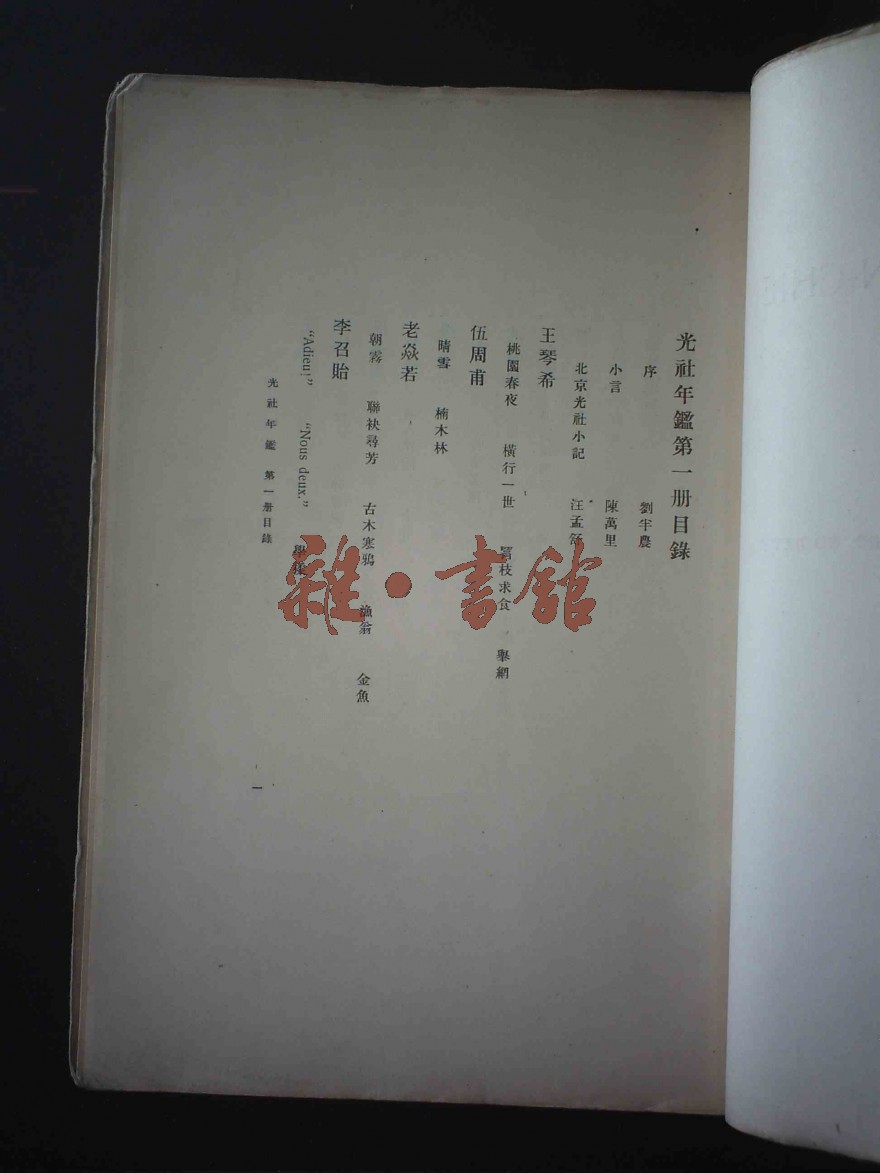 光社年鑑第一册目錄
序 劉半農
小言 陳萬里
北京光社小記 汪孟舒
王琴希
桃園春夜 橫行一世 窩枝求食 舉網
伍周甫
晴雪 楠木林
老焱若
朝霧 聯袂尋芳 古木寒鴉 漁翁 金魚
李召貽
"Adieu!" "Nous deux."
光社年鑑 第一册目錄
一
雜·書館